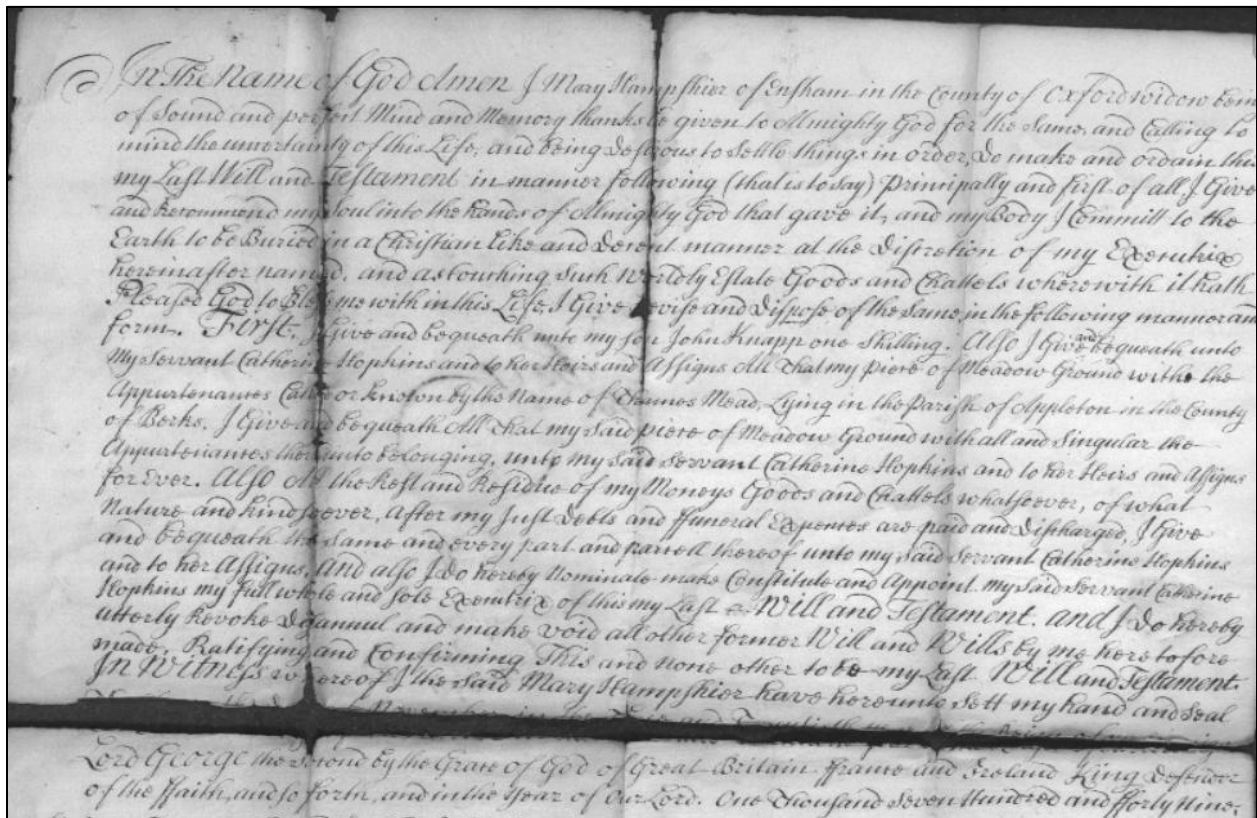 In The Name of God Amen I Mary Hampshier of Ensham in the County of Oxford Widow bein
of Sound and perfect Mind and Memory thanks be given to Almighty God for the Same, and Calling to
mind the uncertainty of this Life, and being Desirous to Settle things in order, Do make and ordain this
my Last Will and Testament in manner following (that is to say) Principally and first of all, I Give
and Recommend my Soul into the hands of Almighty God that gave it, and my Body I Committ to the
Earth to be Buried in a Christian like and Decent manner at the Discretion of my Executrix
hereinafter named. and as touching Such Worldly Estate Goods and Chattels wherewith it hath
Pleased God to Bless me with in this Life, I Give Devise and Dispose of the Same, in the following manner and
form. First. I Give and bequeath unto my son John Knapp one Shilling. Also I Give and bequeath unto
My Servant Catherine Hopkins and to her Heirs and Assigns All That my Piece of Meadow Ground withe the
Appurtenances Called or known by the Name of Thames Mead, Lying in the Parish of Appleton in the County
of Berks. I Give and bequeath All That my said piece of Meadow Ground with all and Singular the
Appurtenances thereunto belonging, unto my said Servant Catherine Hopkins and to her Heirs and Assigns
for Ever. Also All the Rest and Residue of my Moneys Goods and Chattels whatsoever, of what
Nature and kind soever, After my Just Debts and ffuneral Expences are paid and Discharged, I Give
and bequeath the Same and every part and parcell thereof unto my said Servant Catherine Hopkins
and to her Assigns. And also I do hereby Nominate make Constitute and Appoint my said Servant Catherine
Hopkins my full whole and Sole Executrix of this my Last Will and Testament. and I Do hereby
utterly Revoke Disannul and make void all other former Will and Wills by me heretofore
made. Ratifying and Confirming This and none other to be my Last Will and Testament.
In Witness whereof I the said Mary Hampshier have hereunto Sett my hand and Seal
November in the
Lord George the Second by the Grace of God of Great Britain ffrance and Ireland King Defender
of the ffaith, and so forth, and in the Year of Our Lord. One Thousand Seven Hundred and fforty Nine.